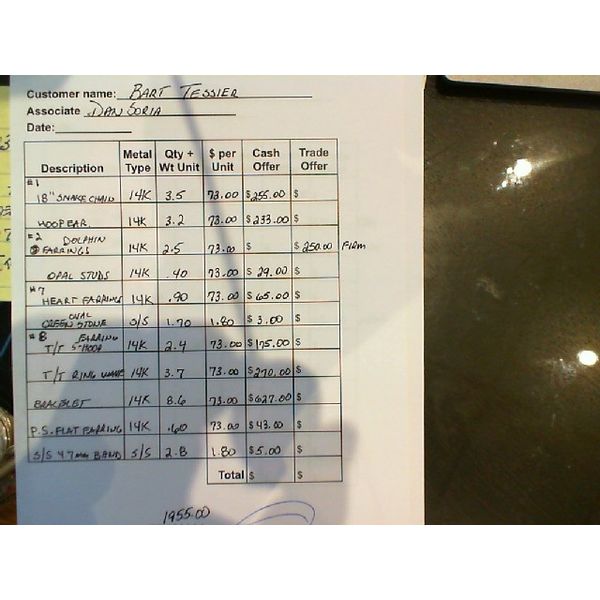 Customer name: BART TESSIER
Associate DAN SORIA
Date:
Description Metal Type Qty + Wt Unit $ per Unit Cash Offer Trade Offer
#1 18" SNAKE CHAIN 14K 3.5 73.00 $255.00 $
HOOP EAR. 14K 3.2 73.00 $233.00 $
#2 DOLPHIN EARRINGS 14K 2.5 73.00 $ $250.00 FIRM
OPAL STUDS 14K .40 73.00 $29.00 $
#7 HEART EARRING 14K .90 73.00 $65.00 $
OVAL GREEN STONE S/S 1.70 1.80 $3.00 $
#8 T/T EARRING S-HOOP 14K 2.4 73.00 $175.00 $
T/T RING 14K 3.7 73.00 $270.00 $
BRACELET 14K 8.6 73.00 $627.00 $
P.S. FLAT EARRING 14K .60 73.00 $43.00 $
S/S 4.7mm BAND S/S 2.8 1.80 $5.00 $
Total $ $
1955.00